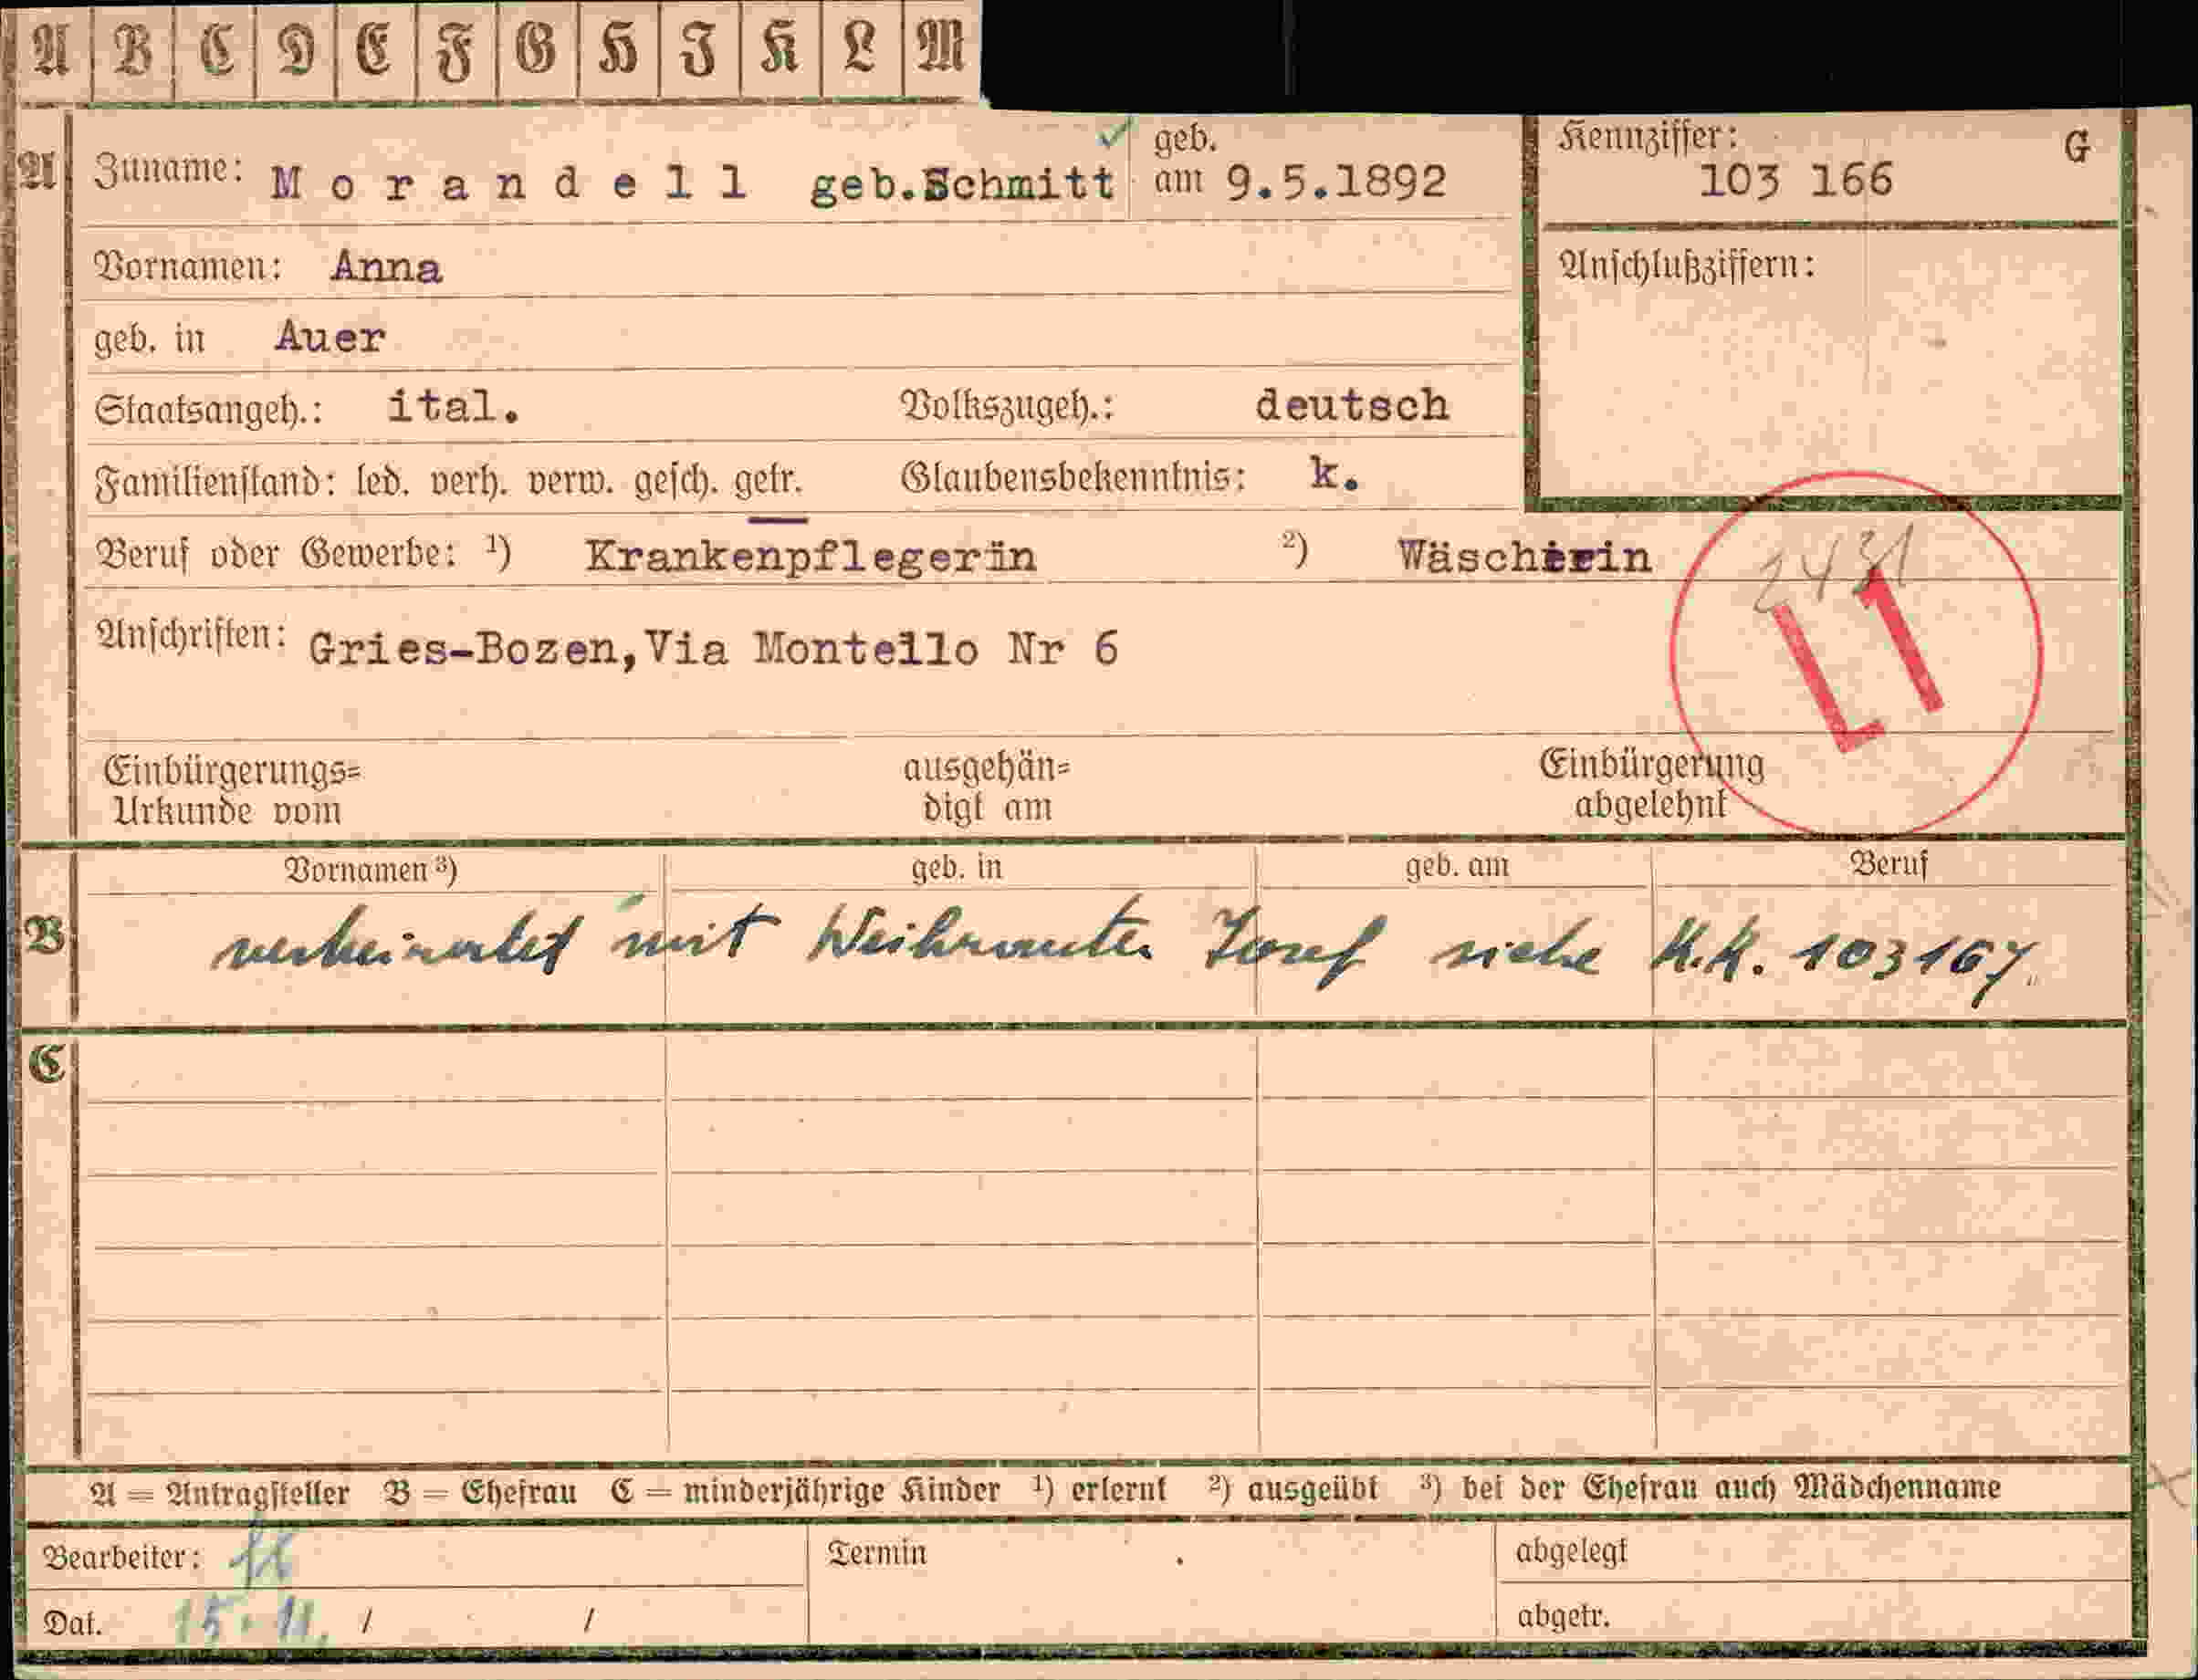 A B C D E F G H I K L M
A Zuname: Morandell geb.Schmitt geb. am 9.5.1892
Kennziffer: 103 166 G
Vornamen: Anna
Anschlußziffern:
geb. in Auer
Staatsangeh.: ital. Volkszugeh.: deutsch
Familienstand: led. verh. verw. gesch. getr. Glaubensbekenntnis: k.
Beruf oder Gewerbe: ¹) Krankenpflegerin ²) Wäscherin
2431
L1
Anschriften: Gries-Bozen,Via Montello Nr 6
Einbürgerungs= ausgehän= Einbürgerung
Urkunde vom digt am abgelehnt
Vornamen ³) geb. in geb. am Beruf
B verheiratet mit Weihrauter Josef siehe K.K. 103167.
C
A = Antragsteller B = Ehefrau C = minderjährige Kinder ¹) erlernt ²) ausgeübt ³) bei der Ehefrau auch Mädchenname
Bearbeiter: Termin abgelegt
Dat. 15. 11. / / abgetr.